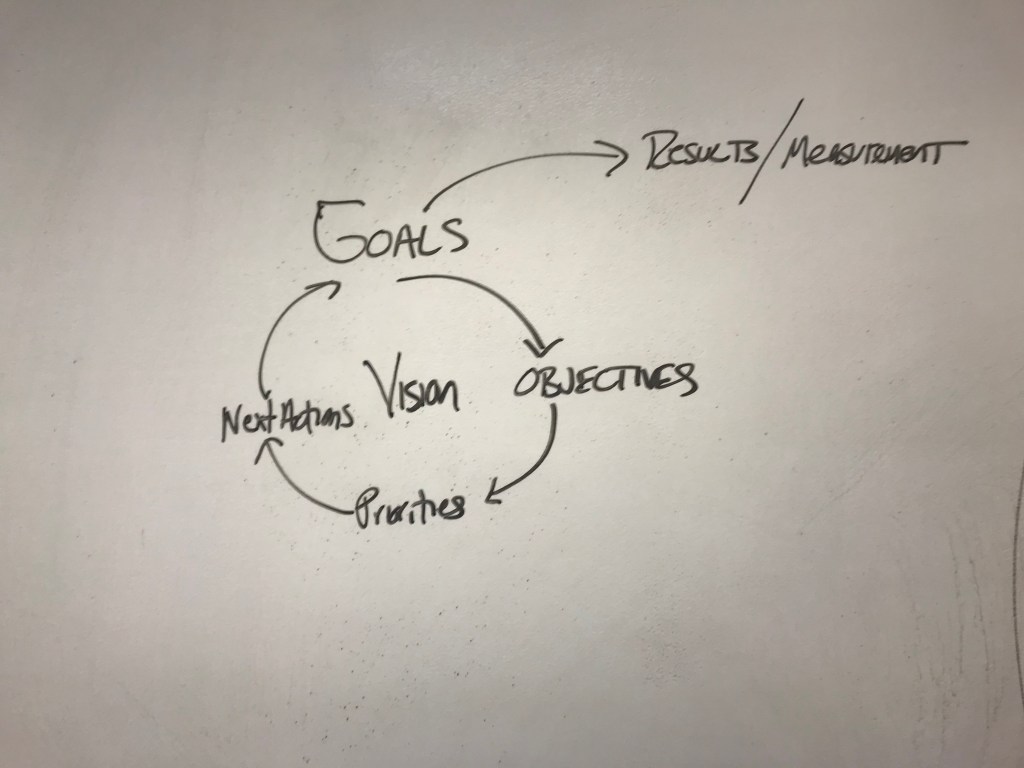 RESULTS/MEASUREMENT
GOALS
Vision
OBJECTIVES
Next Actions
Priorities